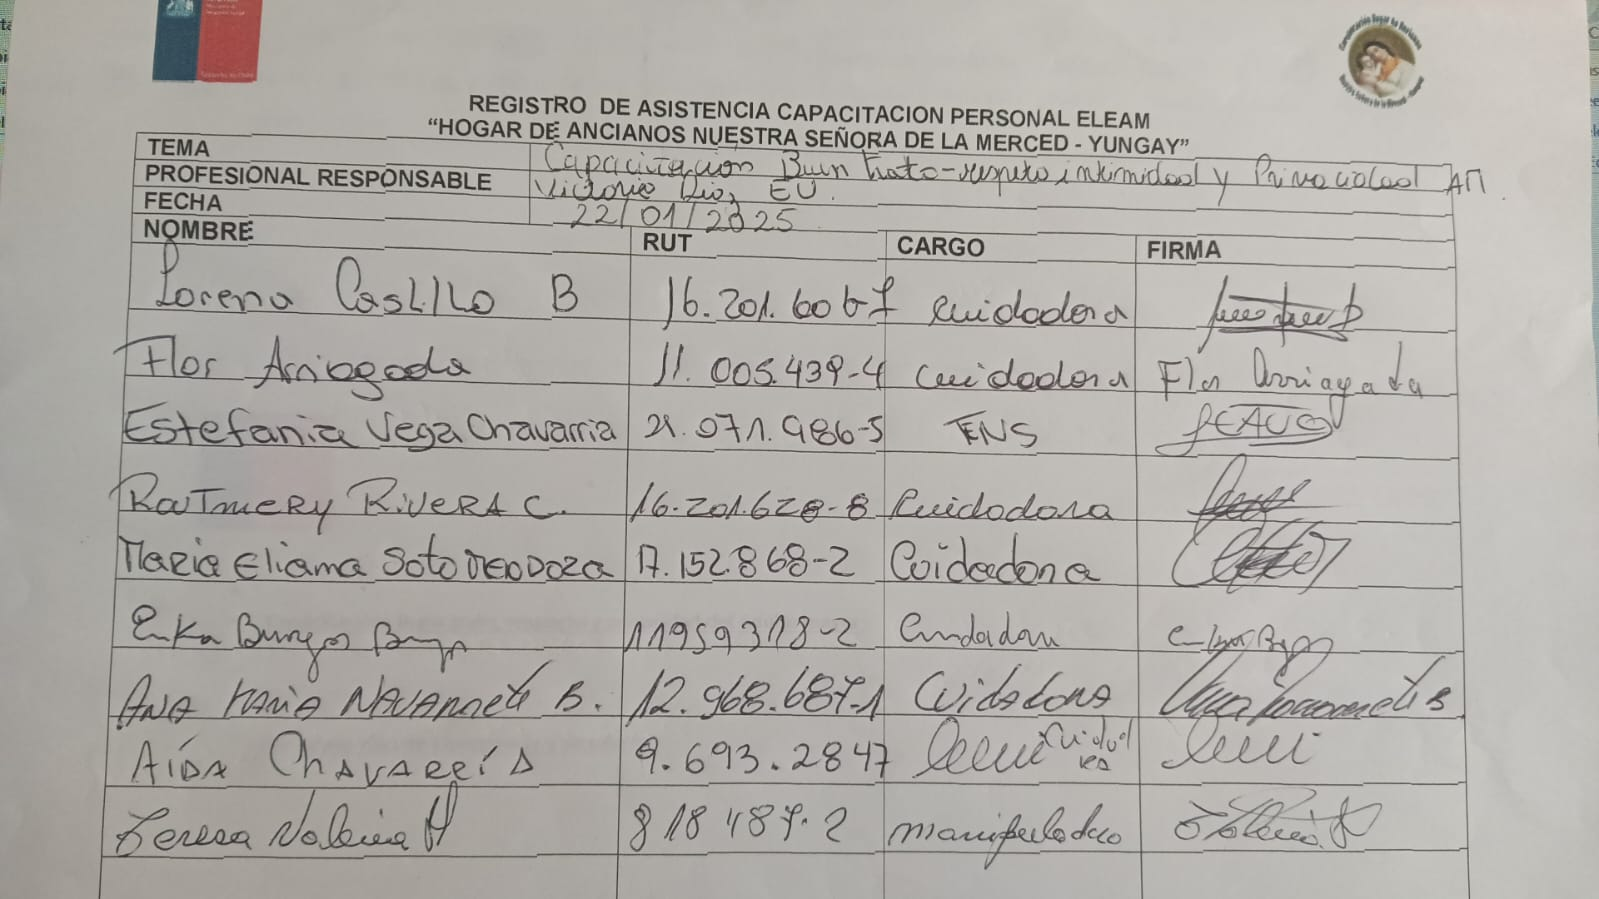 REGISTRO DE ASISTENCIA CAPACITACION PERSONAL ELEAM
“HOGAR DE ANCIANOS NUESTRA SEÑORA DE LA MERCED - YUNGAY”
TEMA Capacitación Buen trato-respeto intimidad y Privacidad AM.
PROFESIONAL RESPONSABLE Victoria EU.
FECHA 22/01/2025
NOMBRE RUT CARGO FIRMA
Lorena Castillo B 16.201.606-7 Cuidadora
Flor Arriagada 11.005.439-4 Cuidadora Flor Arriagada
Estefania Vega Chavarria 21.071.986-5 TENS
RoutMery Rivera C. 16.201.628-8 Cuidadora
Maria Eliama Soto 17.152.868-2 Cuidadora
Erika Burgos 11959318-2 Cuidadora
Ana Maria Navarrete B. 12.968.687-1 Cuidadora
Aída Chavarría 9.693.2847
Teresa 818487-2